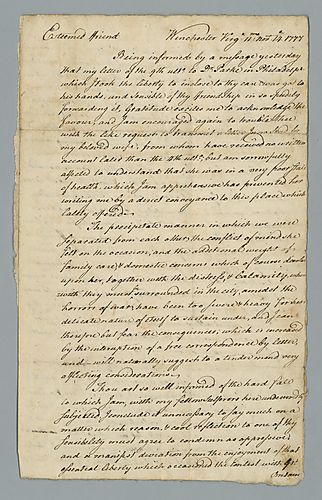 Esteemed Friend Winchester Virga. 11mo. 14. 1777
Being informed by a message yesterday
that my letter of the 9th ulto. to Dr. Parke in Philada.
which I took the liberty to inclose to thy care was got to
his hands, and sensible of thy friendship in so speedily
forwarding it, Gratitude excites me to acknowledge the
favour, and I am encouraged again to trouble thee
with the like request to transmit a letter
my beloved wife; from whom have received no written
account later than the 4th ulto; but am sorrowfully
affected to understand that she was in a very poor state
of health, which I am apprehensive has prevented her
writing me by a direct conveyance to this place which
lately offered.
The precipitate manner in which we were
separated from each other, the conflict of mind she
felt on the occasion, and the additional weight of
family care & domestic concerns which of course devolv'd
upon her, together with the distresses & Calamity where
with they must be surrounded in the city, amidst the
horrors of war, have been too severe & heavy for her
delicate nature of itself to sustain under, and I can
therefore but fear the consequences, which is increased
by the interruption of a free correspondence by letter,
and will naturally suggest to a tender mind very
affecting considerations.
Thou art so well informed of the hard fate
to which I am, with my fellow sufferers here
subjected, I conclude it unnecessary to say much on a
matter which reason, & cool reflection to one of thy
sensibility must agree to condemn as oppressive
and a manifest deviation from the enjoyment of that
essential liberty which occasioned the contest with Gt.